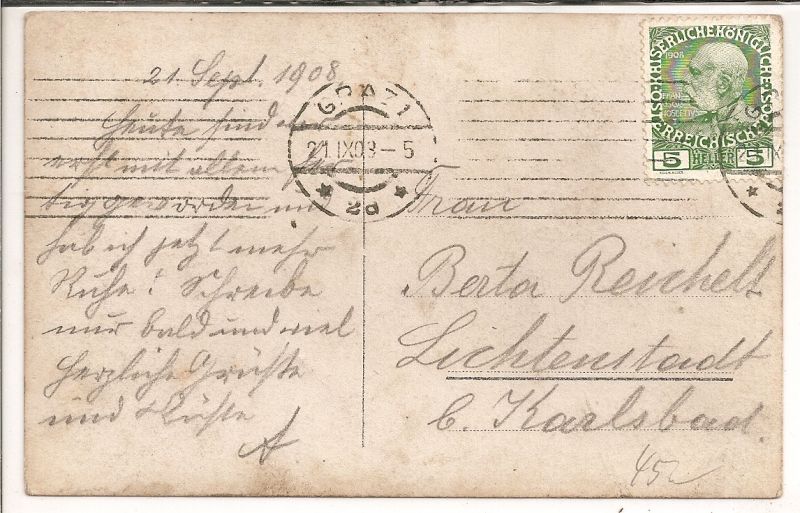 21 Sept. 1908
Heute sind wir
erst mit allem fer-
tig geworden und
hab ich jetzt mehr
Ruhe! Schreibe
nur bald und viel
herzliche Grüsse
und Küsse
A
GRAZ 1
21.IX.08-5
* 2d *
KAISERLICHE KÖNIGLICHE ÖSTERREICHISCHE POST
1908
FRANZ
5 HELLER 5
Frau
Berta Reichelt
Lichtenstadt
b. Karlsbad.